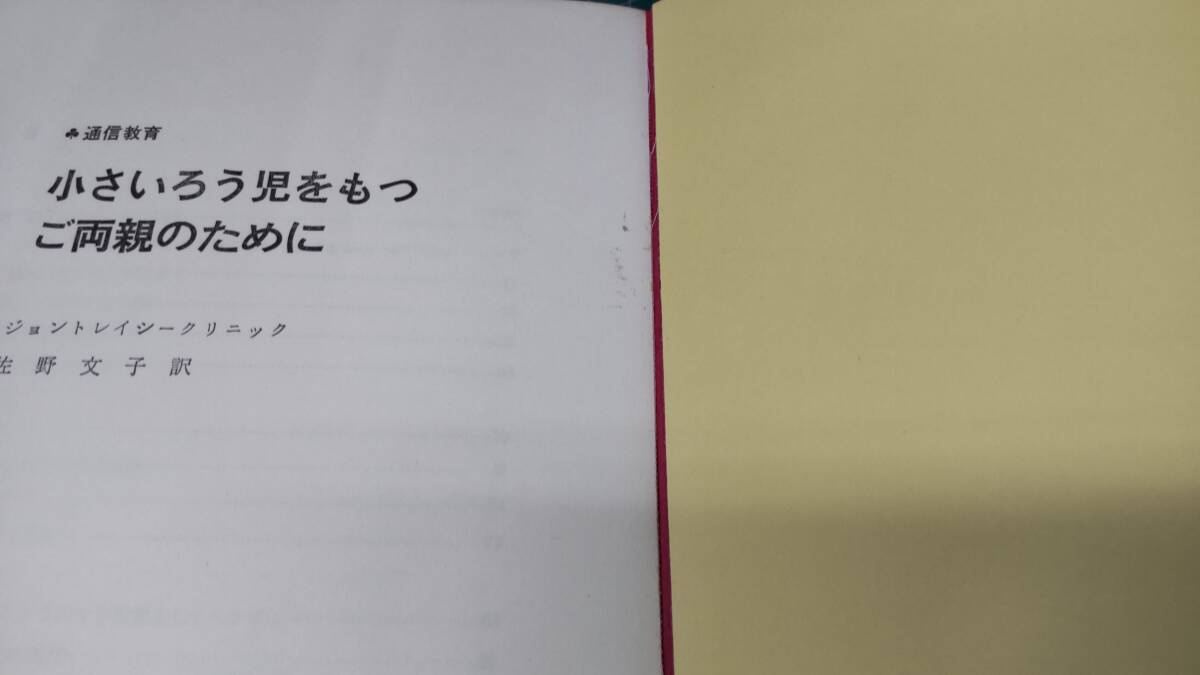 ♣通信教育
小さいろう児をもつ
ご両親のために
ジョントレイシークリニック
佐野文子訳